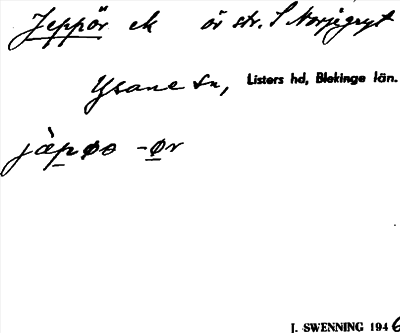 Jeppör ek ör str. S Norjegryt
Ysane sn, Listers hd, Blekinge län.
jäpøo -ør
J. SWENNING 1946